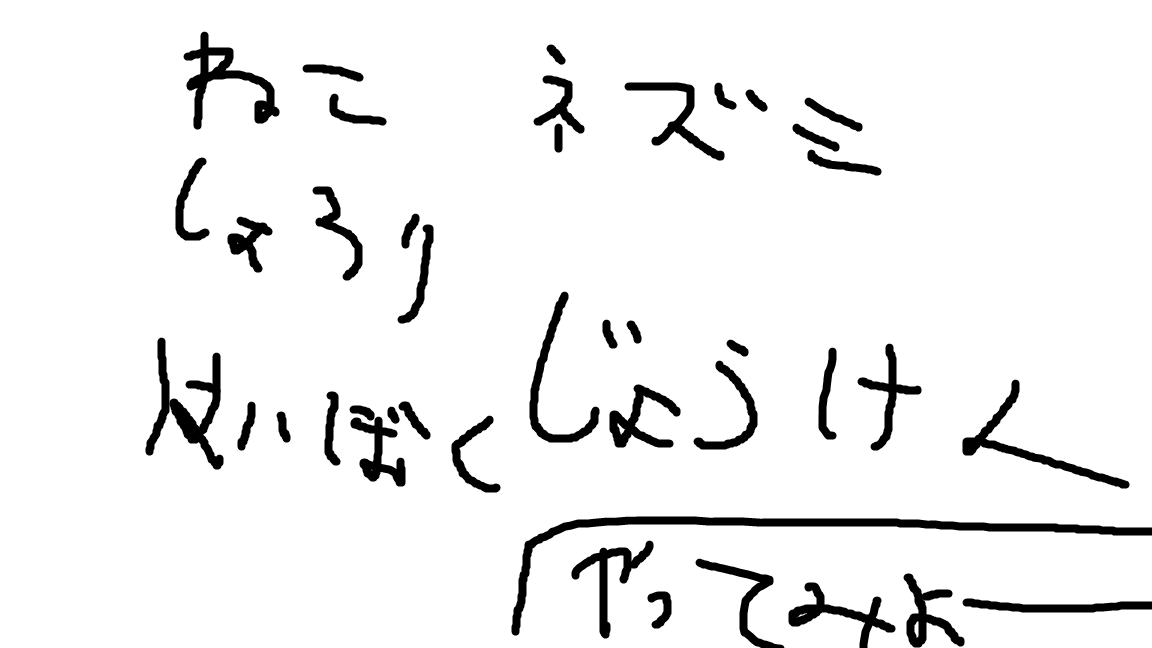 ねこ ネズミ
しょうり
はいぼくじょうけん
やってみよー